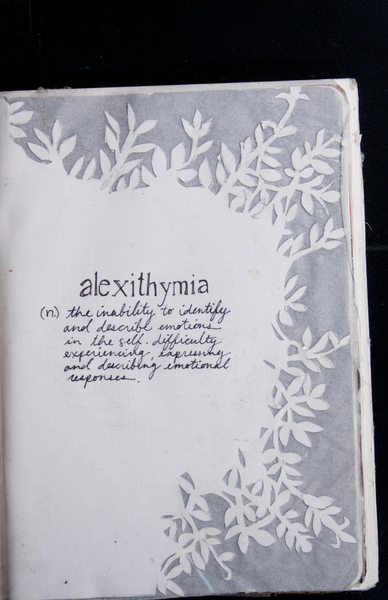 alexithymia
(n) the inability to identify
and describe emotions
in the self. difficulty
experiencing, expressing
and describing emotional
responses.